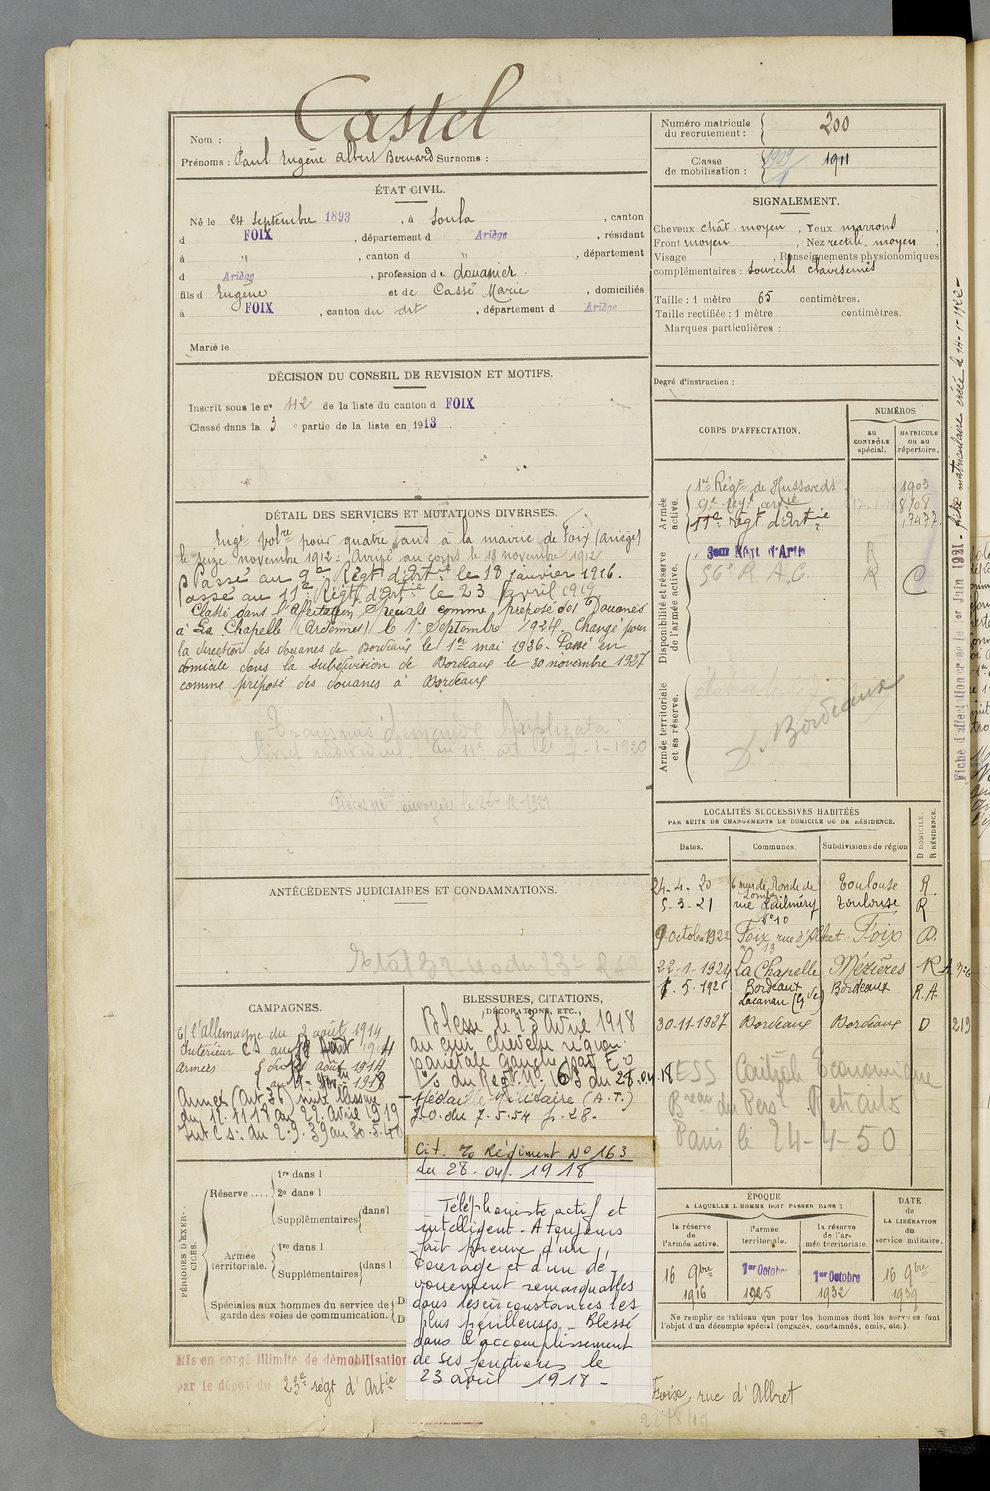 Castel
Nom :
Prénoms : Paul Eugène Albert Bernard Surnoms :
ÉTAT CIVIL.
Né le 24 Septembre 1893, à Soula, canton
d FOIX, département d Ariège, résidant
à " , canton d " , département
d Ariège, profession de douanier.
fils d Eugène et de Cassé Marie, domiciliés
à FOIX, canton du dit, département d Ariège
Marié le
DÉCISION DU CONSEIL DE REVISION ET MOTIFS.
Inscrit sous le n° 42 de la liste du canton d FOIX
Classé dans la 3 e partie de la liste en 1913.
DÉTAIL DES SERVICES ET MUTATIONS DIVERSES.
Engé volre pour quatre ans à la mairie de Foix (Ariège)
le seize novembre 1912. Arrivé au corps le 18 novembre 1912
Passé au 9e Régt d'Artie le 18 janvier 1916.
Passé au 11e Régt d'Artie le 23 avril 1919
Classé dans l'Affectation Spéciale comme préposé des Douanes
à La Chapelle (Ardennes) le 1er Septembre 1924. Changé pour
la direction des douanes de Bordeaux le 1er mai 1926. Passé en
domicile dans la subdivision de Bordeaux le 30 novembre 1927
comme préposé des douanes à Bordeaux
demande duplicata
livret individuel au 11e art le 7-1-1920
envoyée le 26-12-1921
ANTÉCÉDENTS JUDICIAIRES ET CONDAMNATIONS.
du 23e RA
CAMPAGNES.
c/ l'allemagne du 2 août 1914
Intérieur CS au août 1914
armées { du août 1914
{ au 11 Nov 1918
Armées (Art. 36)
du 12.11.18 au 22 avril 1919
Int CS : du 2.9.39 au 30.5.40
BLESSURES, CITATIONS,
DÉCORATIONS, ETC.
Blessé le 23 avril 1918
au cuir chevelu région
pariétale gauche par E.O
C/o du Régt N° 163 du 28.04.18
Médaille Militaire (A.T.)
J.O. du 7.5.54 p. 28.
Cit. % Régiment N° 163
du 28-04-1918
Téléphoniste actif et
intelligent - A toujours
fait preuve d'un
courage et d'un dé-
vouement remarquables
dans les circonstances les
plus périlleuses - Blessé
dans l'accomplissement
de ses fonctions le
23 avril 1918 -
PÉRIODES D'EXERCICES.
Réserve ....
1re dans l
2e dans l
Supplémentaires
dans l
Armée
territoriale.
1re dans l
Supplémentaires
dans l
Spéciales aux hommes du service de
garde des voies de communication.
Mis en congé illimité de démobilisation
par le dépôt du 23e régt d'Artie
Numéro matricule
du recrutement : 200
Classe
de mobilisation : 1909 1911
SIGNALEMENT.
Cheveux chât. moyen, Yeux marrons,
Front moyen, Nez rectil. moyen,
Visage , Renseignements physionomiques
complémentaires : Sourcils clairsemés
Taille : 1 mètre 65 centimètres.
Taille rectifiée : 1 mètre centimètres.
Marques particulières :
Degré d'instruction :
CORPS D'AFFECTATION.
NUMÉROS
au
CONTRÔLE
spécial.
MATRICULE
ou au
répertoire.
Armée
active.
1er Régt de Hussards 1903
9e régt artie 8708
11e Régt d'Artie 17477
Disponibilité et réserve
de l'armée active.
Régt d'Artie R
56e R.A.C. R C
Armée territoriale
et sa réserve.
D. Bordeaux
LOCALITÉS SUCCESSIVES HABITÉES
PAR SUITE DE CHANGEMENTS DE DOMICILE OU DE RÉSIDENCE.
Dates. Communes. Subdivisions de région
D DOMICILE.
R RÉSIDENCE.
24-4-20 Toulouse R.
5-3-21 rue N° 10 Toulouse R
9 octobre 1922 Foix rue d'Albret 13 Foix D.
22-1-1924 La Chapelle Mézières R
1-5-1926 Bordeaux Lacanau (Gde) Bordeaux R.A
30-11-1927 Bordeaux Bordeaux D 219
ESS Contrôle Economique
Breau du Persl Retraité
Paris le 24-4-50
ÉPOQUE
A LAQUELLE L'HOMME DOIT PASSER DANS :
la réserve
de l'armée active.
l'armée
territoriale.
la réserve
de l'ar-
mée territoriale.
DATE
de
LA LIBÉRATION
du
service militaire.
16 9bre 1916
1er Octobre 1925
1er Octobre 1932
16 9bre 1939
Ne remplir ce tableau que pour les hommes dont les services font
l'objet d'un décompte spécial (engagés, condamnés, omis, etc.).
Foix, rue d'Albret
22/8/19
Fiche d'affectation créée le 1er Juin 1921 - fiche matriculaire créée le 14-1-1922 -